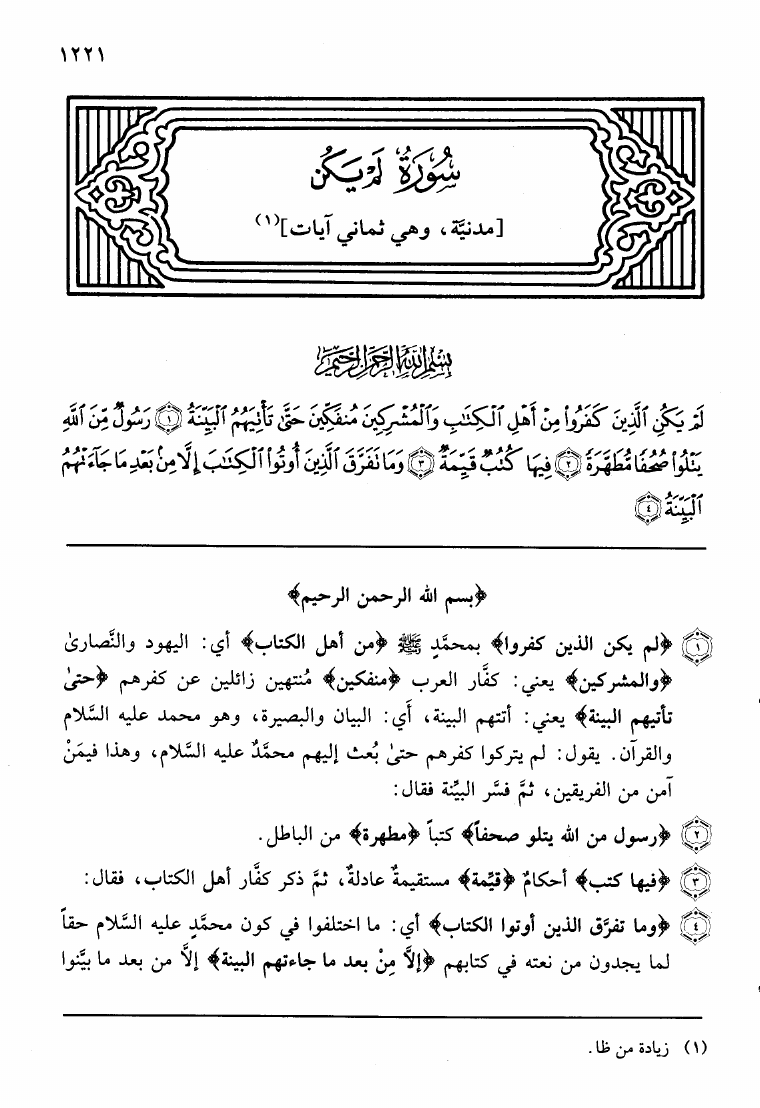 ١٢٢١
سُورَةُ لَمْ يَكُن
[مدنيَّة، وهي ثماني آيات](١)
بِسْمِ اللَّهِ الرَّحْمَٰنِ الرَّحِيمِ
لَمْ يَكُنِ ٱلَّذِينَ كَفَرُوا۟ مِنْ أَهْلِ ٱلْكِتَٰبِ وَٱلْمُشْرِكِينَ مُنفَكِّينَ حَتَّىٰ تَأْتِيَهُمُ ٱلْبَيِّنَةُ ١ رَسُولٌ مِّنَ ٱللَّهِ
يَتْلُوا۟ صُحُفًا مُّطَهَّرَةً ٢ فِيهَا كُتُبٌ قَيِّمَةٌ ٣ وَمَا تَفَرَّقَ ٱلَّذِينَ أُوتُوا۟ ٱلْكِتَٰبَ إِلَّا مِنۢ بَعْدِ مَا جَآءَتْهُمُ
ٱلْبَيِّنَةُ ٤
﴿بسم الله الرحمن الرحيم﴾
١ ﴿لم يكن الذين كفروا﴾ بمحمَّدٍ ﷺ ﴿من أهل الكتاب﴾ أي: اليهود والنَّصارىٰ
﴿والمشركين﴾ يعني: كفَّار العرب ﴿منفكين﴾ مُنتهين زائلين عن كفرهم ﴿حتىٰ
تأتيهم البينة﴾ يعني: أتتهم البينة، أي: البيان والبصيرة، وهو محمد عليه السَّلام
والقرآن. يقول: لم يتركوا كفرهم حتىٰ بُعث إليهم محمَّدٌ عليه السَّلام، وهذا فيمَنْ
آمن من الفريقين، ثمَّ فسَّر البيِّنة فقال:
٢ ﴿رسول من الله يتلو صحفاً﴾ كتباً ﴿مطهرة﴾ من الباطل.
٣ ﴿فيها كتب﴾ أحكامٌ ﴿قيِّمة﴾ مستقيمةٌ عادلةٌ، ثمَّ ذكر كفَّار أهل الكتاب، فقال:
٤ ﴿وما تفرَّق الذين أوتوا الكتاب﴾ أي: ما اختلفوا في كون محمَّدٍ عليه السَّلام حقاً
لما يجدون من نعته في كتابهم ﴿إلاَّ مِنْ بعد ما جاءتهم البينة﴾ إلاَّ من بعد ما بيَّنوا
(١) زيادة من ظا.